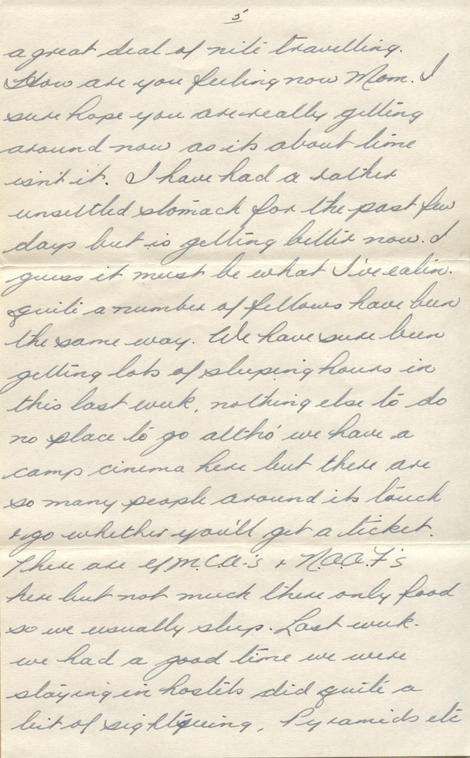 5
a great deal of nite travelling.
How are you feeling now Mom. I
sure hope you are really getting
around now as its about time
isn't it. I have had a rather
unsettled stomach for the past few
days but is getting better now. I
guess it must be what I've eatin.
quite a number of fellows have been
the same way. We have sure been
getting lots of sleeping hours in
this last week, nothing else to do
no place to go altho' we have a
camp cinema here but there are
so many people around its touch
& go whether you'll get a ticket.
There are Y.M.C.A.'s & N.A.A.F.'s
here but not much there only food
so we usually sleep. Last week.
we had a good time we were
staying in hostels did quite a
bit of sightseeing, Pyramids etc